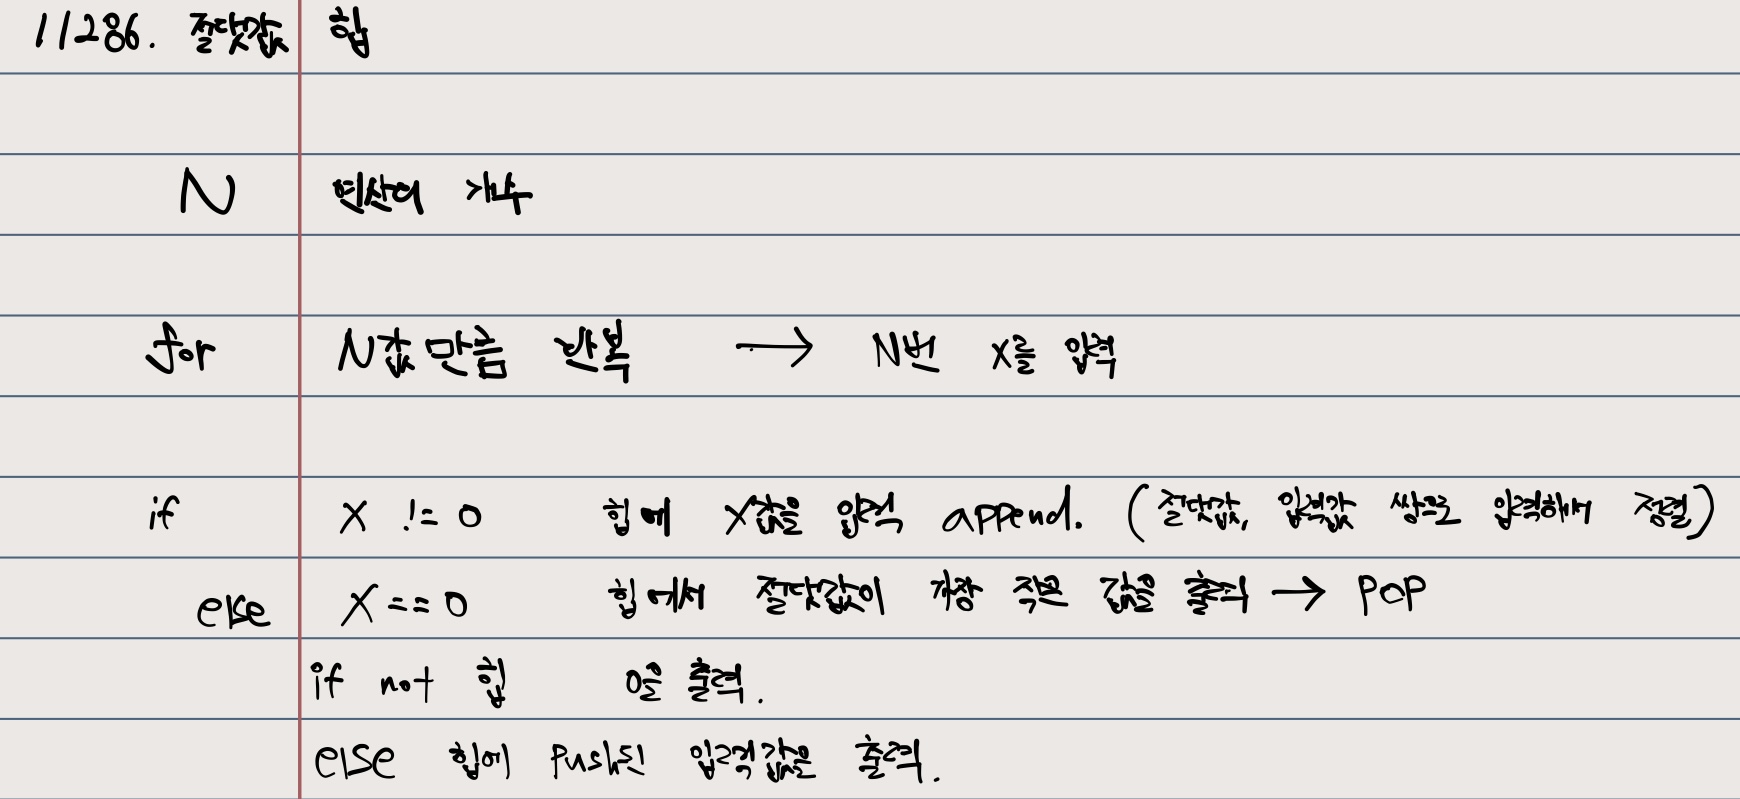 11286. 절댓값 힙
N 연산의 개수
for N값 만큼 반복 → N번 x를 입력
if x != 0 힙에 x값을 입력 append. (절댓값, 입력값 쌍으로 입력해서 정렬)
else x == 0 힙에서 절댓값이 가장 작은 값을 출력 → POP
if not 힙 0을 출력.
else 힙에 Push된 입력값을 출력.